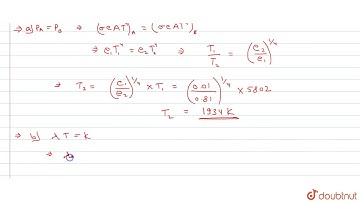 ⇒ a) P_A = P_B ⇒ (σeAT⁴)_A = (σeAT⁴)_B
⇒ e₁T₁⁴ = e₂T₂⁴ ⇒ T₁/T₂ = (e₂/e₁)^1/4
⇒ T₂ = (e₁/e₂)^1/4 × T₁ = (0.01/0.81)^1/4 × 5802
T₂ = 1934 K
⇒ b) λT = k
⇒ λ
doubtnut